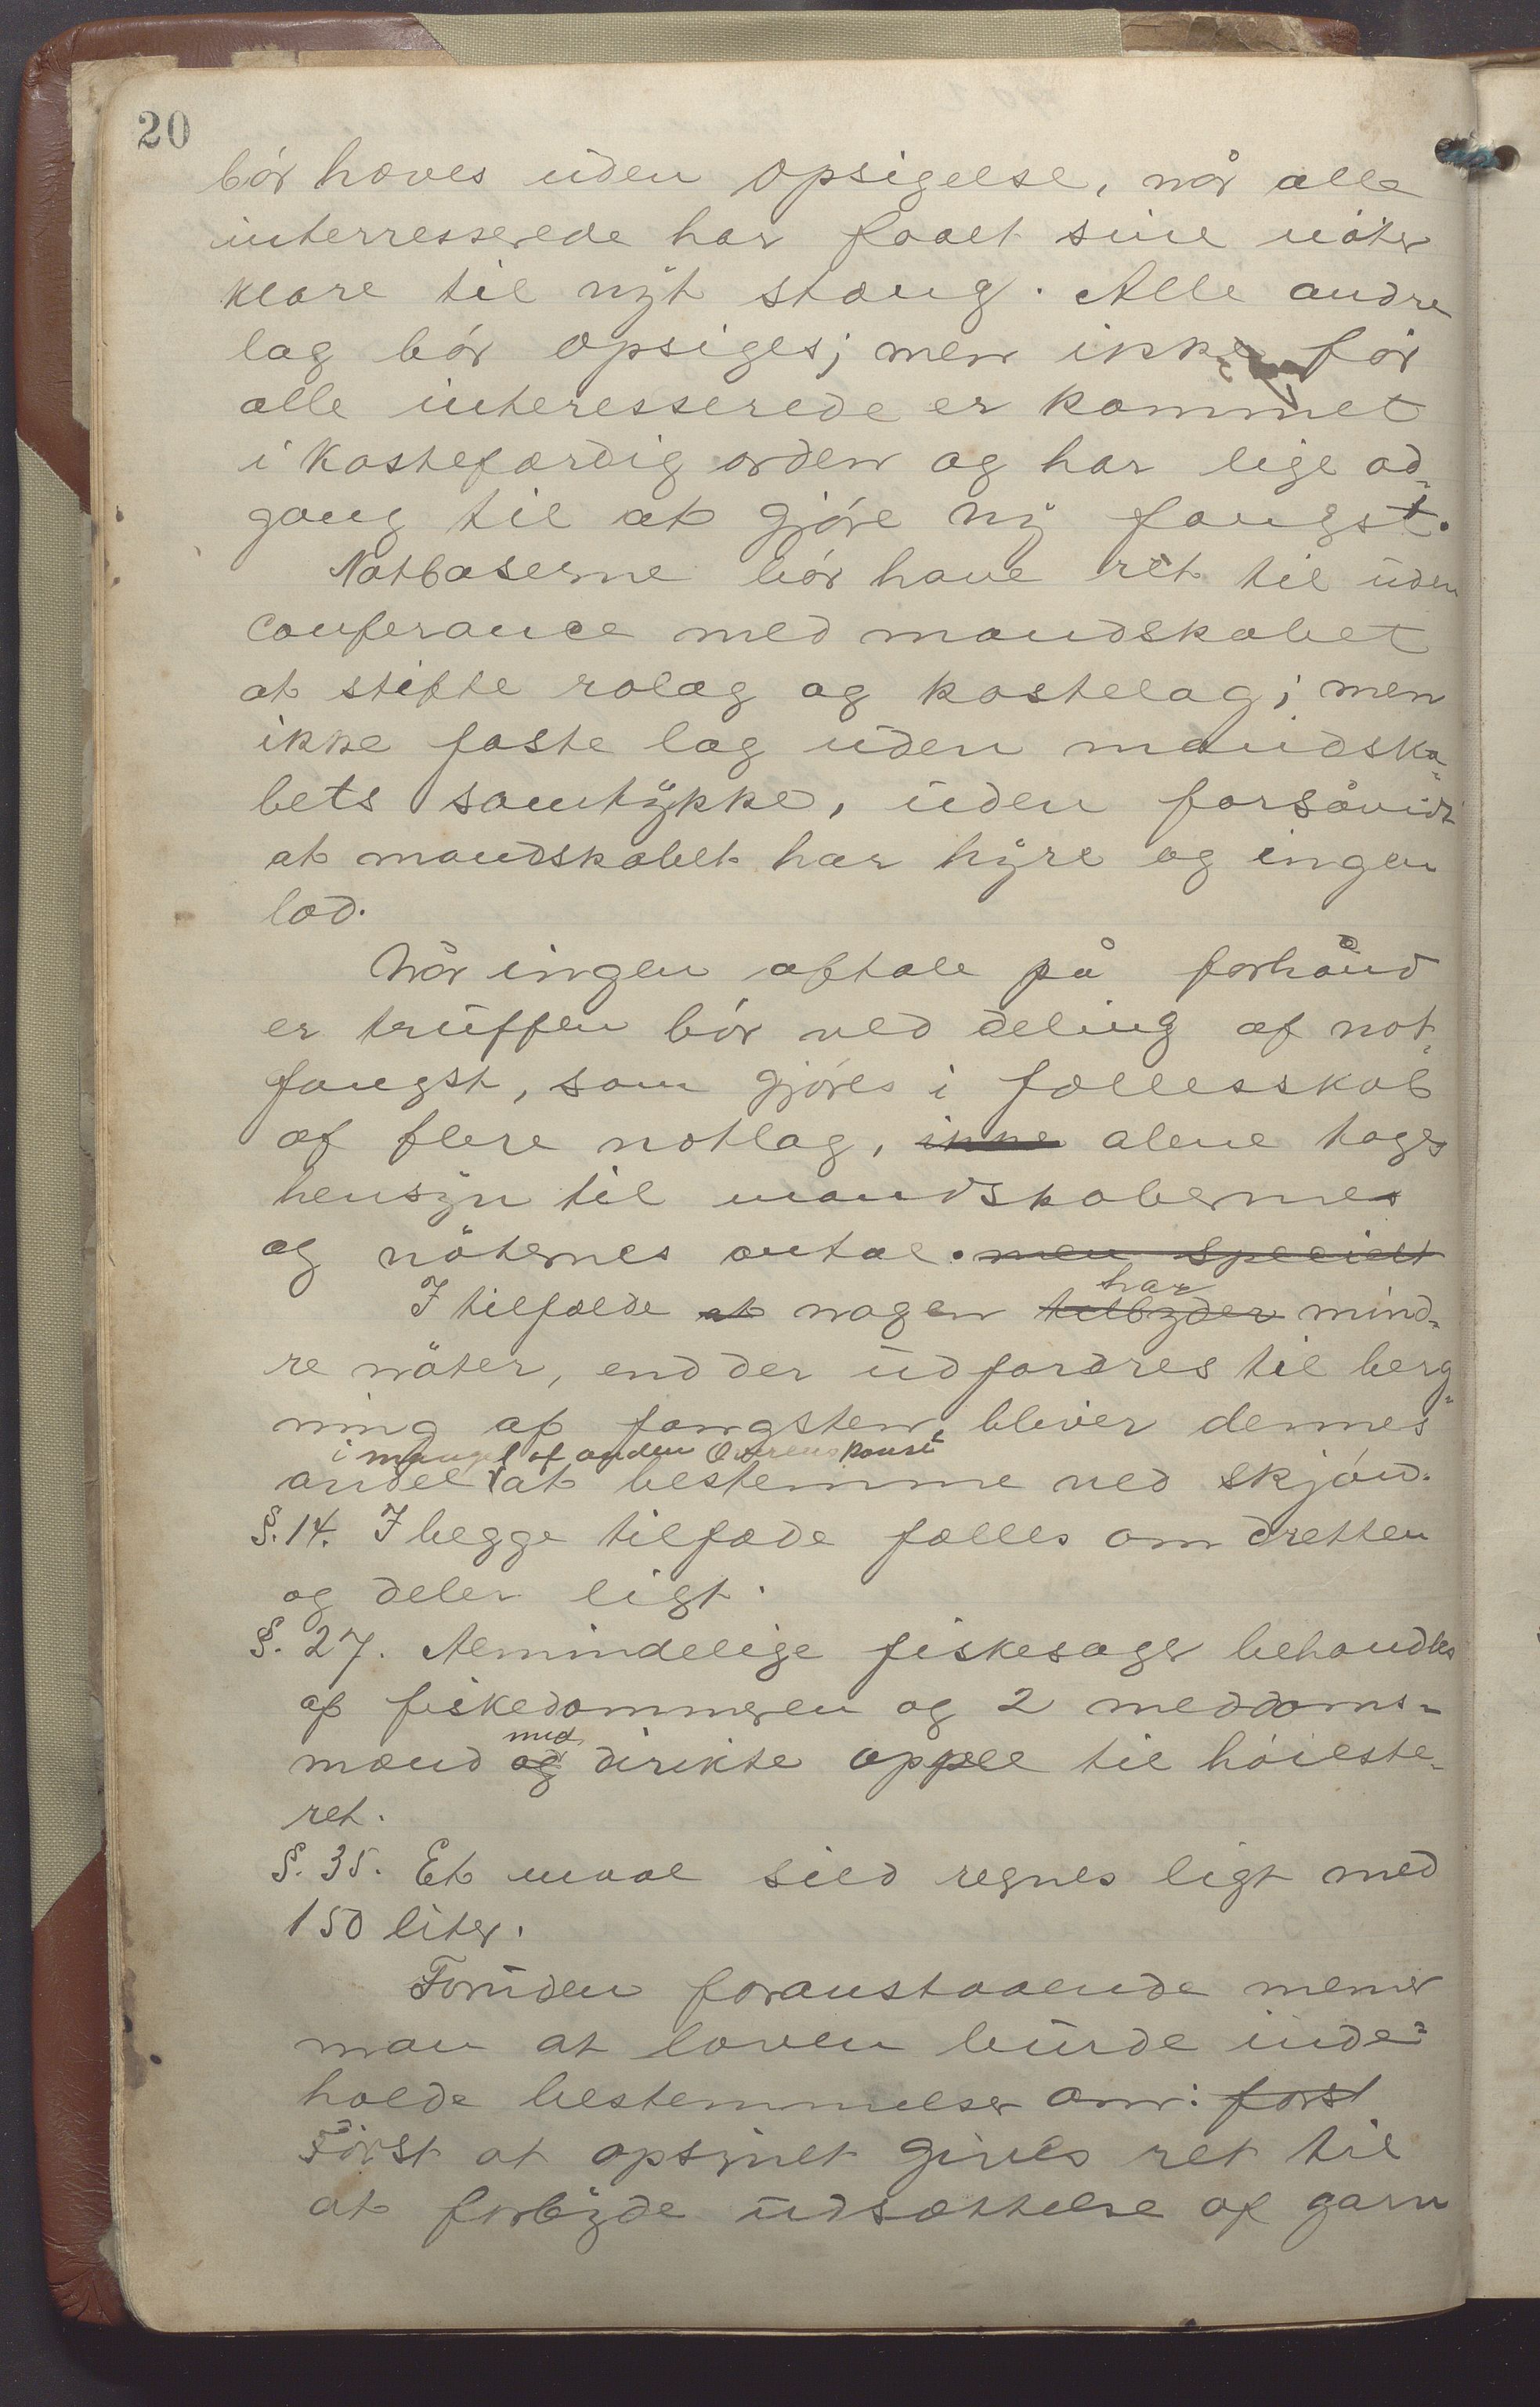 20
bør hæves uden opsigelse, når alle
interresserede har faaet sine nøter
klare til nyt stæng. Alle andre
lag bør opsiges; men ikke før
alle interesserede er kommet
i kastefærdig orden og har lige ad-
gang til at gjøre ny fangst.
Notbaserne bør have ret til uden
conferance med mandskabet
at stifte rolag og kastelag; men
ikke faste lag uden mandska-
bets samtykke, uden forsåvidt
at mandskabet har hyre og ingen
lod.
Når ingen aftale på forhånd
er truffen bør ved deling af not-
fangst, som gjøres i fællesskab
af flere notlag, ikke alene tages
hensyn til mandskabernes
og nøternes antal. men specielt
har
I tilfælde at nogen tilbyder mind-
re nøter, end der udfordres til berg-
ning af fangsten, bliver dennes
i mangel af anden Overenskomst
andel at bestemme ved skjøn.
§. 14. I begge tilfæde fælles om dretten
og deler ligt.
§. 27. Almindelige fiskesager behandles
af fiskedommeren og 2 meddoms-
med
mænd og direkte appel til høieste-
ret.
§. 35. Et maal sild regnes ligt med
150 liter.
Foruden foranstaaende mener
man at loven burde inde-
holde bestemmelser om: først
Først at opsynet gives ret til
at forbyde udsættelse af garn